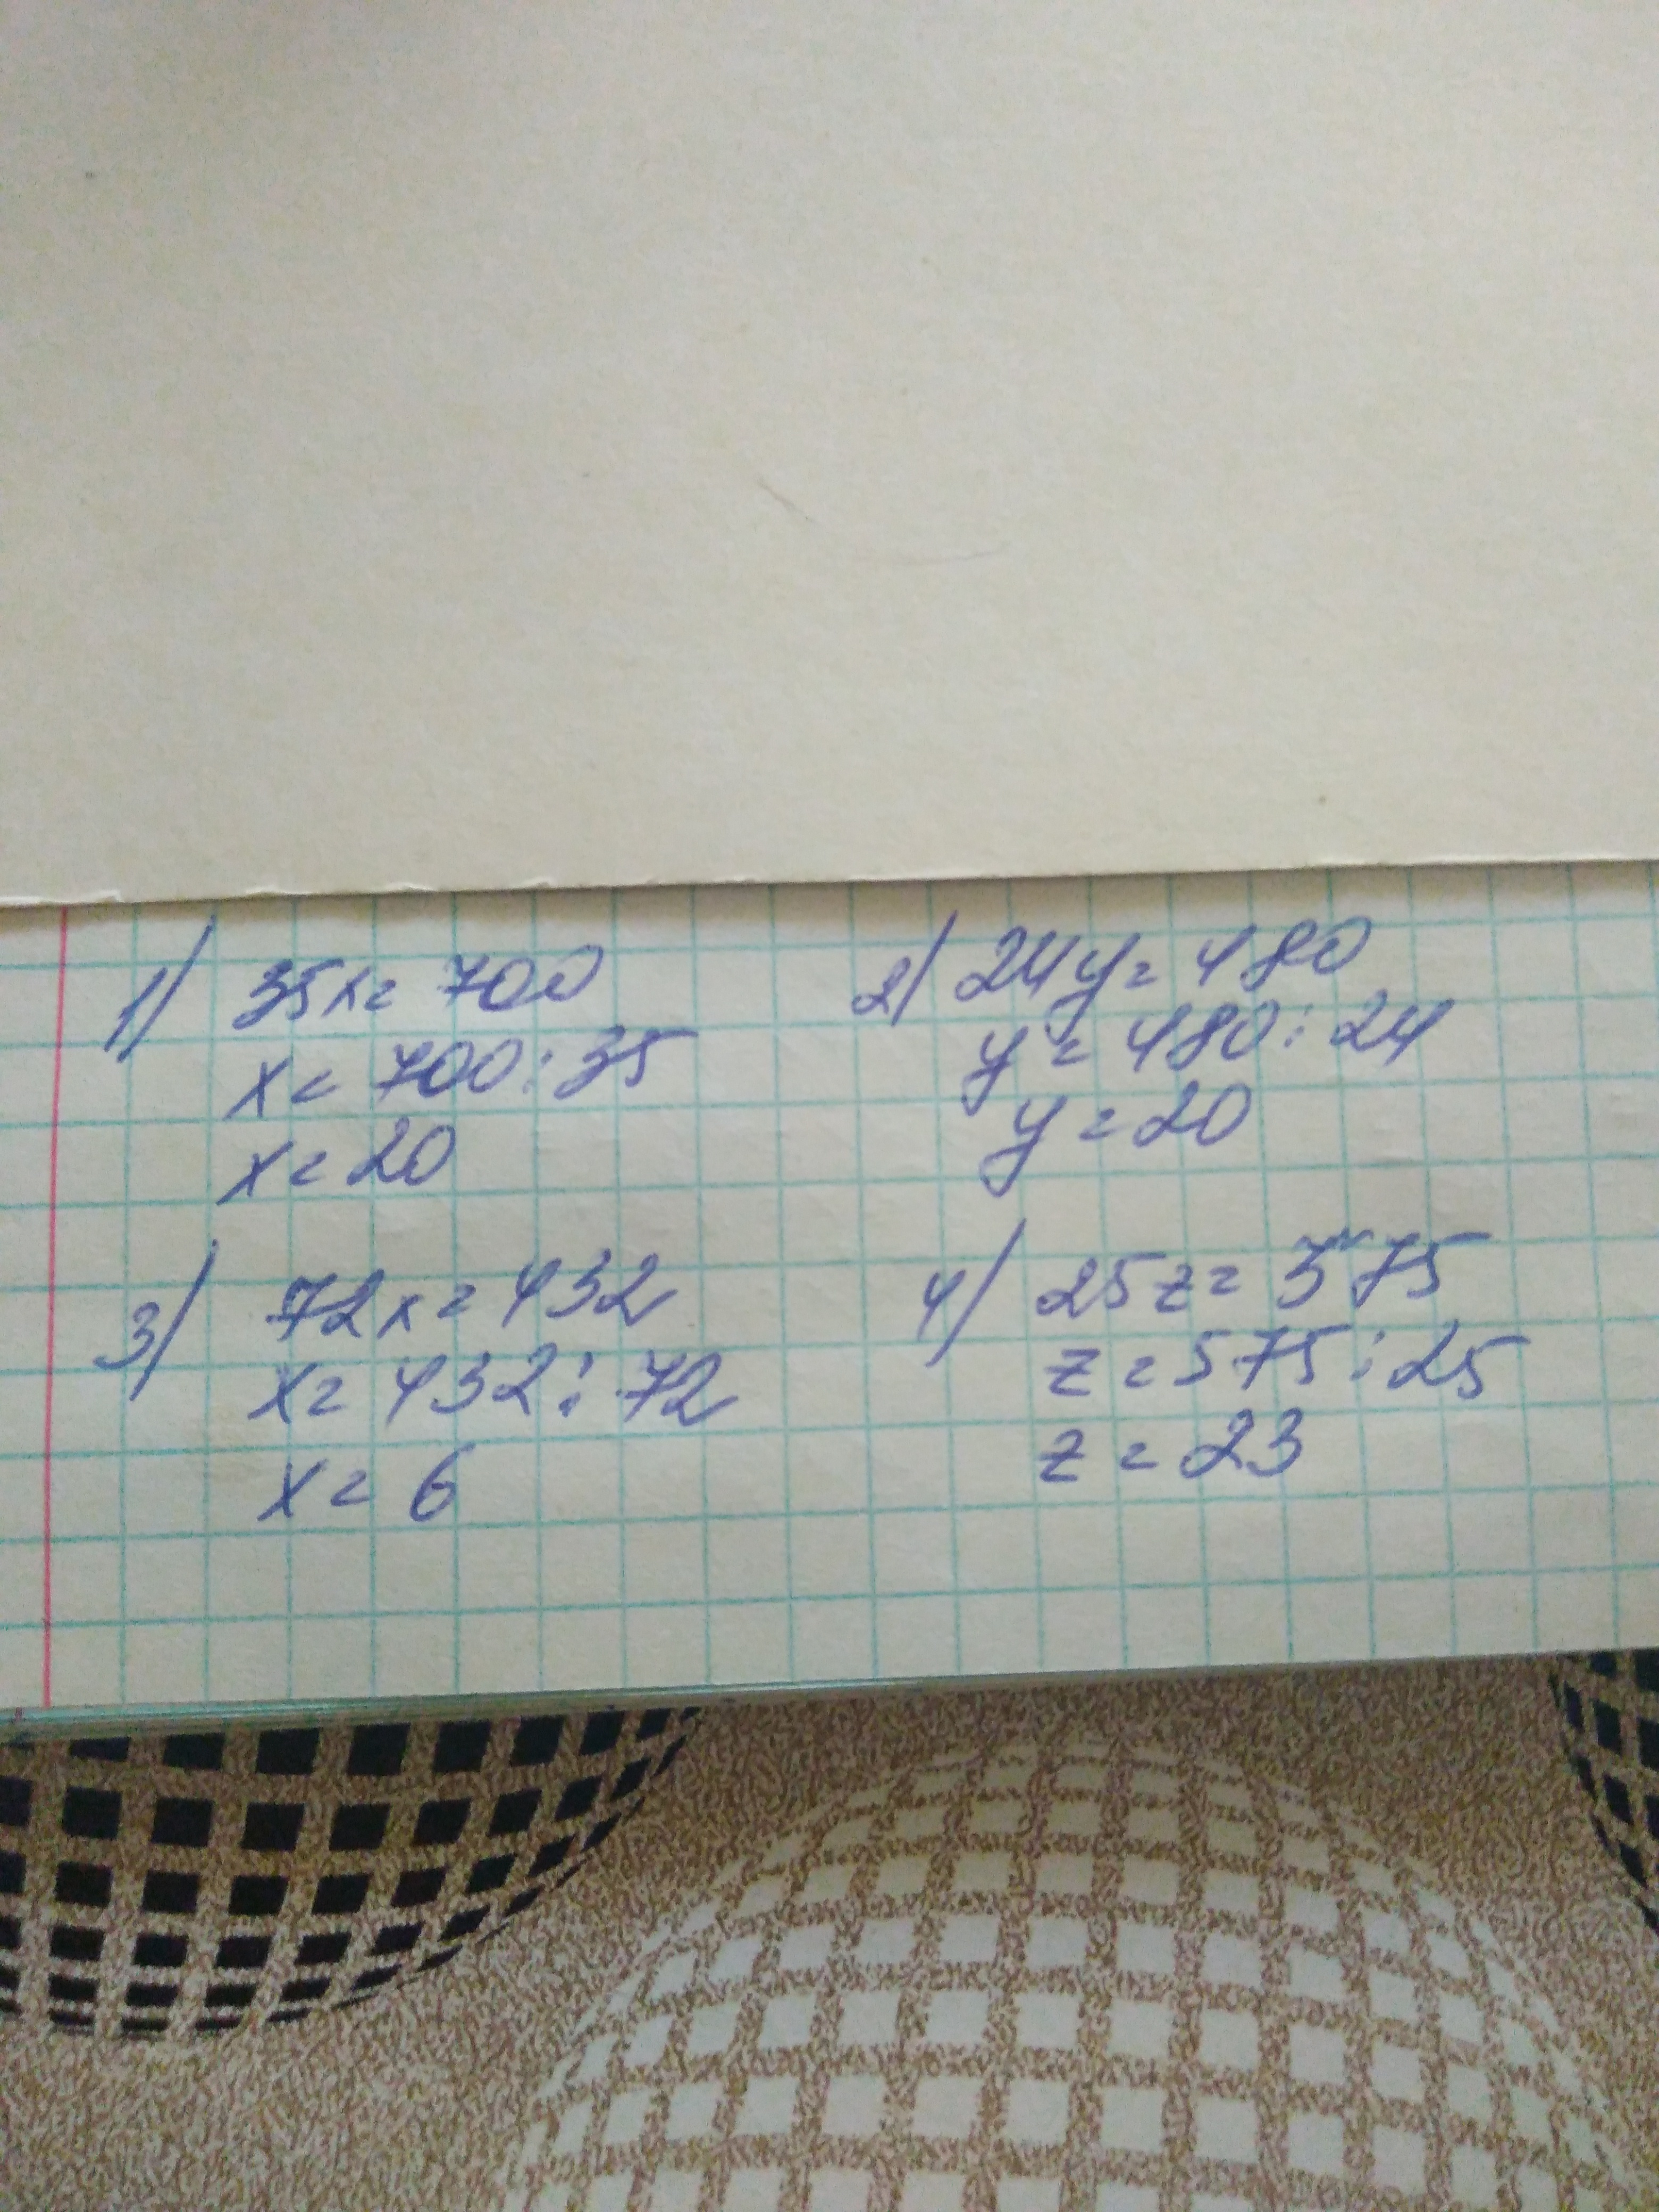 1) 35x = 700
x = 700 : 35
x = 20
2) 24y = 480
y = 480 : 24
y = 20
3) 72x = 432
x = 432 : 72
x = 6
4) 25z = 575
z = 575 : 25
z = 23